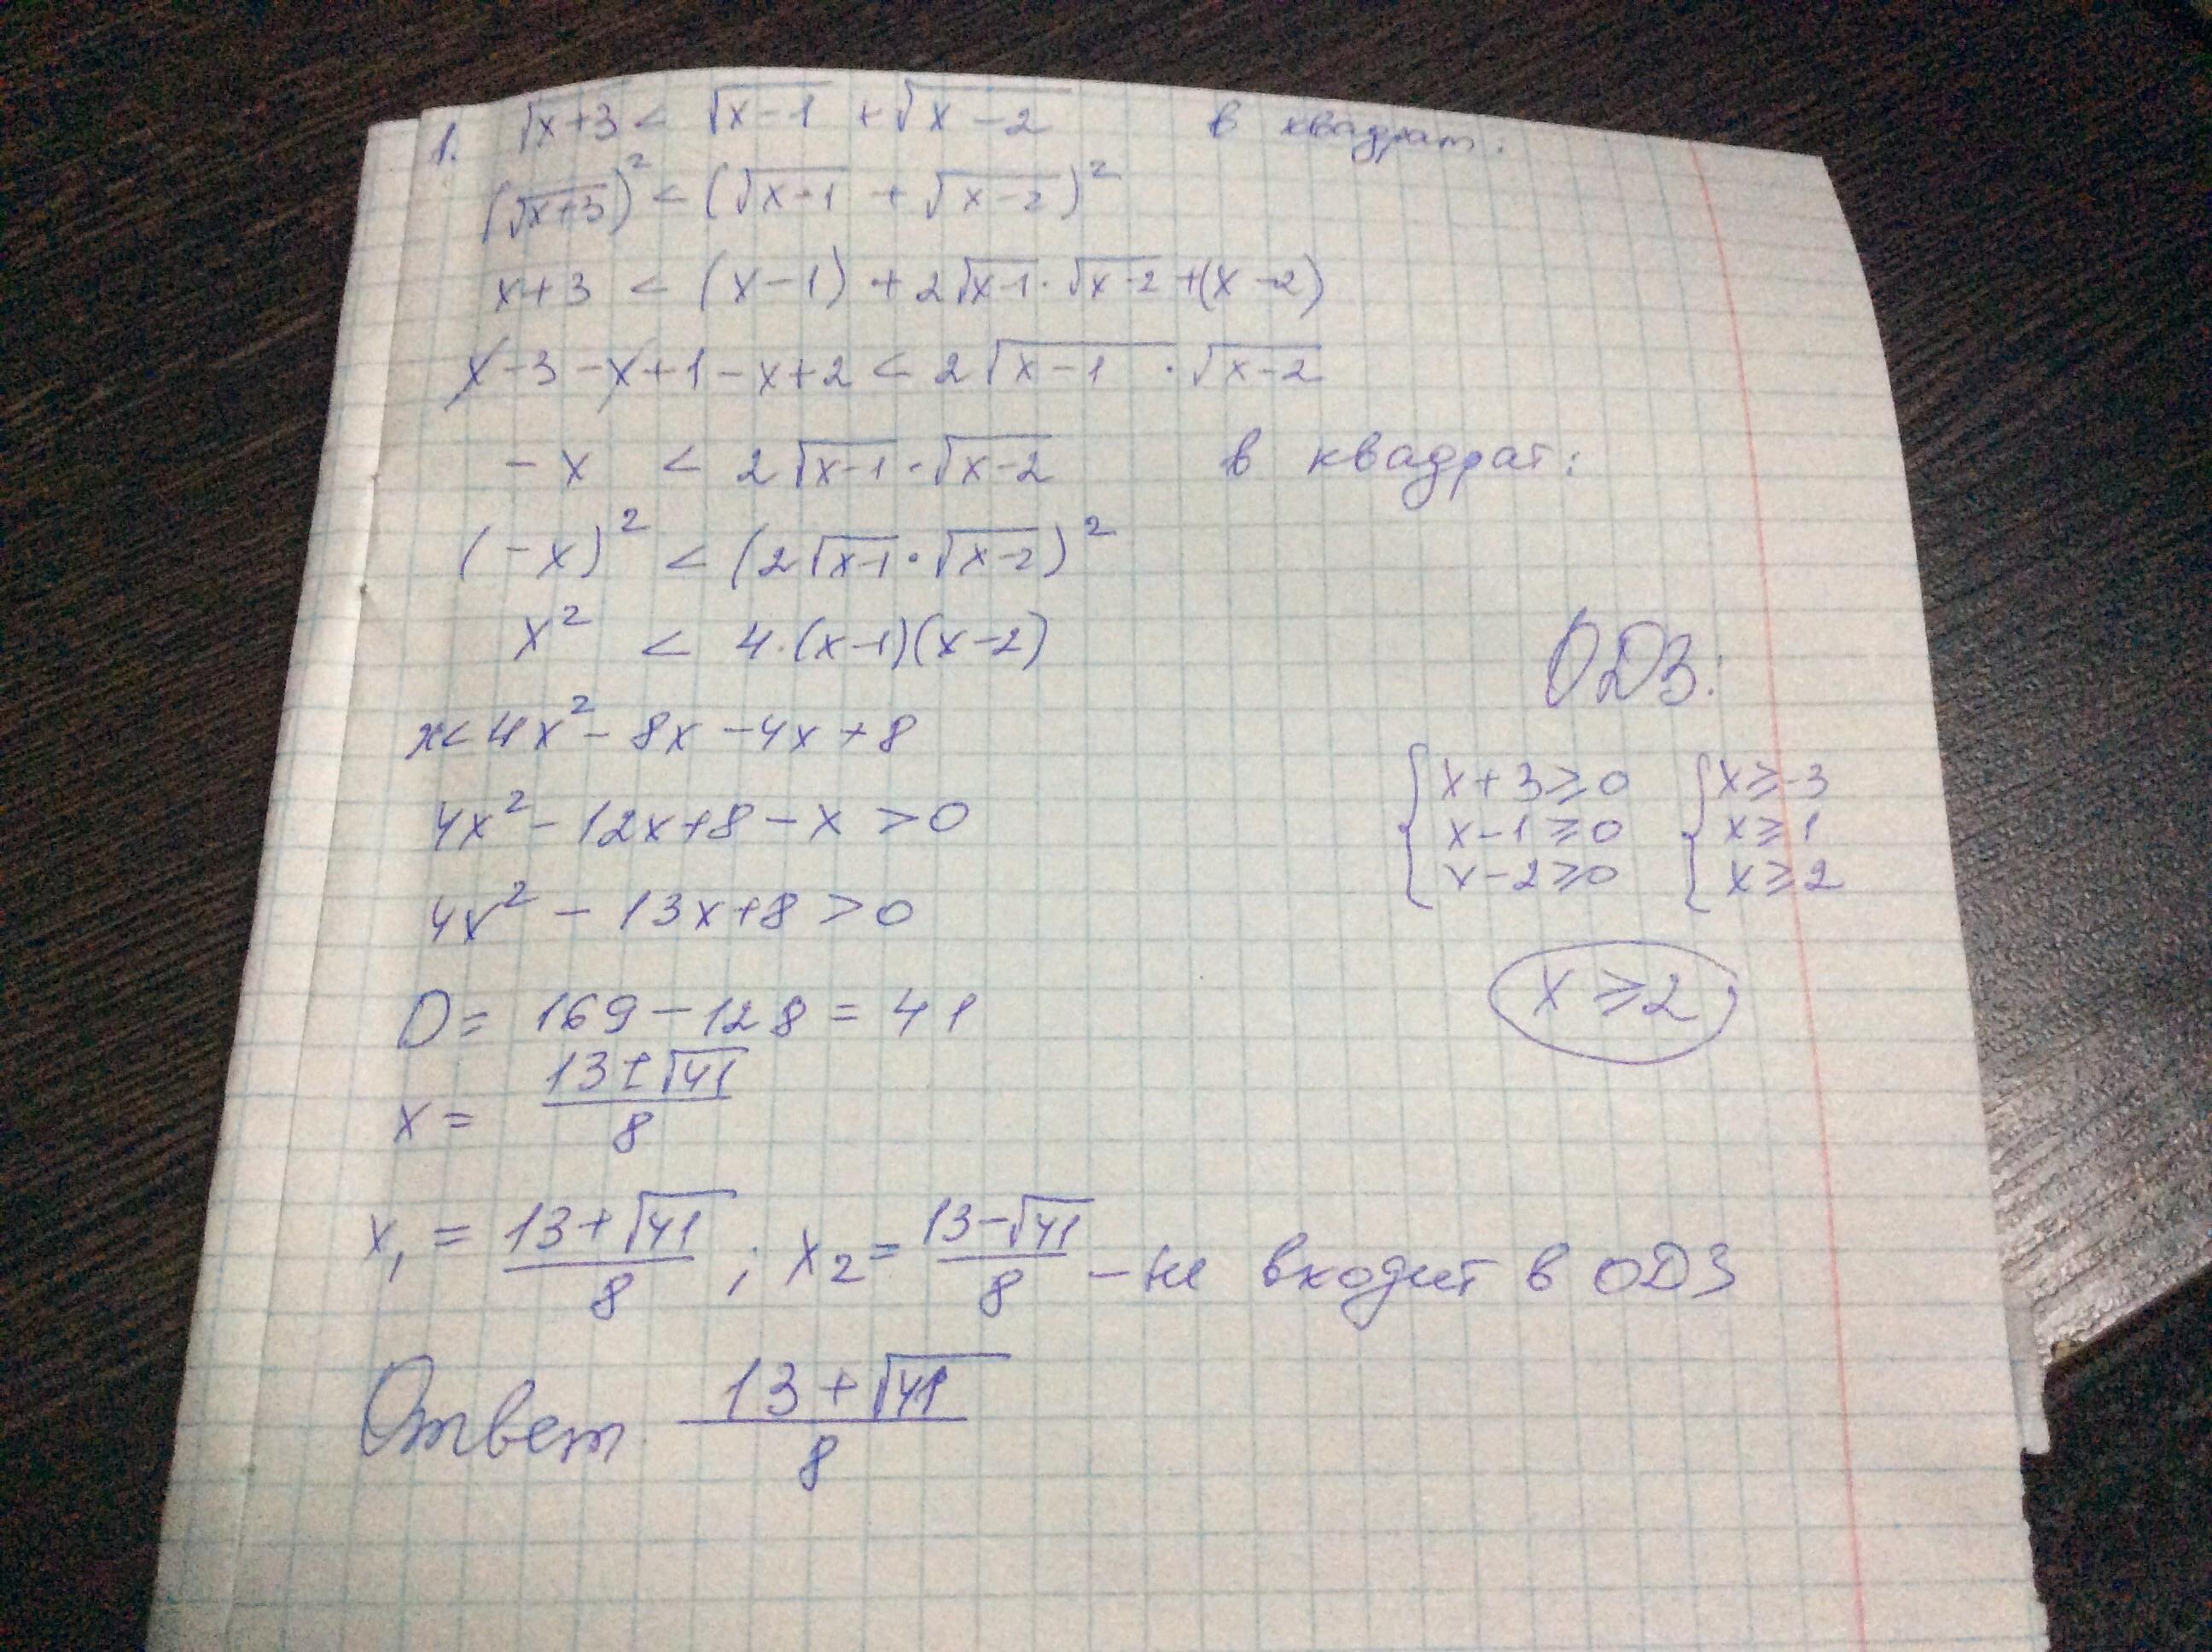 1. √x+3 < √x-1 + √x-2 в квадрат:
(√x+3)² < (√x-1 + √x-2)²
x+3 < (x-1) + 2√x-1 · √x-2 +(x-2)
x-3-x+1-x+2 < 2√x-1 · √x-2
-x < 2√x-1 · √x-2 в квадрат:
(-x)² < (2√x-1 · √x-2)²
x² < 4·(x-1)(x-2)
x< 4x² - 8x - 4x + 8
4x² - 12x+8 - x > 0
4x² - 13x+8 > 0
D = 169 - 128 = 41
x = 13±√41 / 8
x₁ = 13+√41 / 8 ; x₂ = 13-√41 / 8 - не входит в ОДЗ
Ответ 13+√41 / 8
ОДЗ:
{ x+3≥0 { x≥-3
x-1≥0 x≥1
x-2≥0 x≥2
x≥2